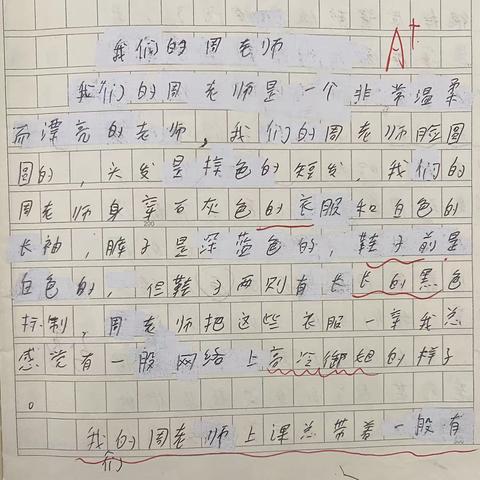 我们的周老师
A+
我们的周老师是一个非常温柔
而漂亮的老师，我们的周老师脸圆
圆的，头发是棕色的短发，我们的
周老师身穿石灰色的衣服和白色的
长袖，裤子是深蓝色的，鞋子前是
白色的，但鞋子两则有长长的黑色
标制，周老师把这些衣服一穿我总
感觉有一股网络上高冷御姐的样子
。
我的周老师上课总带着一般有
们